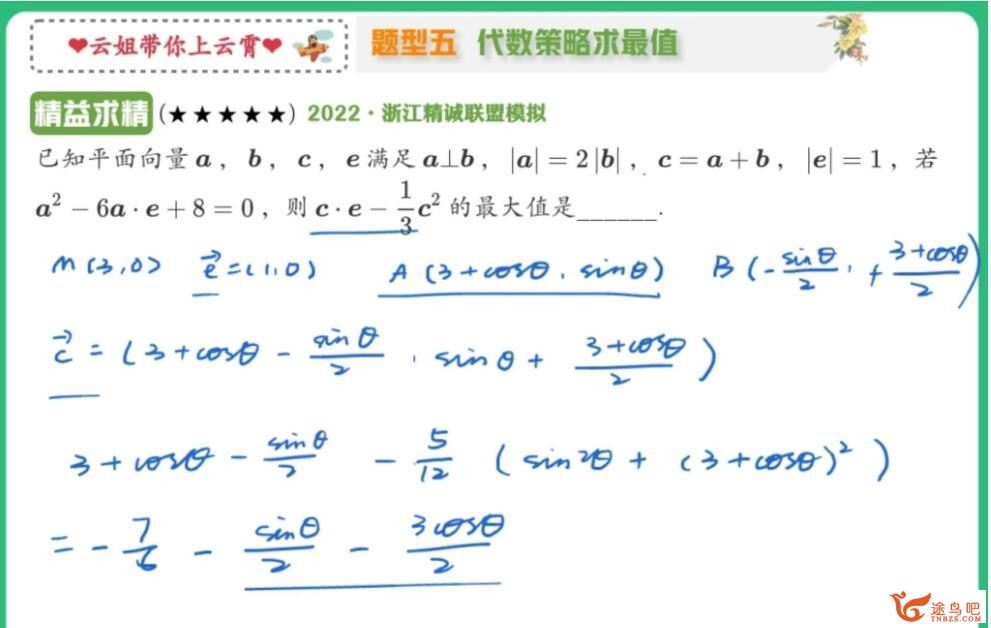 ❤云姐带你上云霄❤ 题型五 代数策略求最值
精益求精 (★★★★★) 2022·浙江精诚联盟模拟
已知平面向量 a, b, c, e 满足 a⊥b, |a|=2|b|, c=a+b, |e|=1, 若
a²-6a·e+8=0, 则 c·e-\frac{1}{3}c² 的最大值是______.
M(3,0) \vec{e}=(1,0) A(3+cosθ, sinθ) B(-\frac{sinθ}{2}, +\frac{3+cosθ}{2})
\vec{c}=(3+cosθ-\frac{sinθ}{2}, sinθ+\frac{3+cosθ}{2})
3+cosθ-\frac{sinθ}{2}-\frac{5}{12}(sin²θ+(3+cosθ)²)
=-\frac{7}{6}-\frac{sinθ}{2}-\frac{3cosθ}{2}
途鸟吧
TNBZS.COM